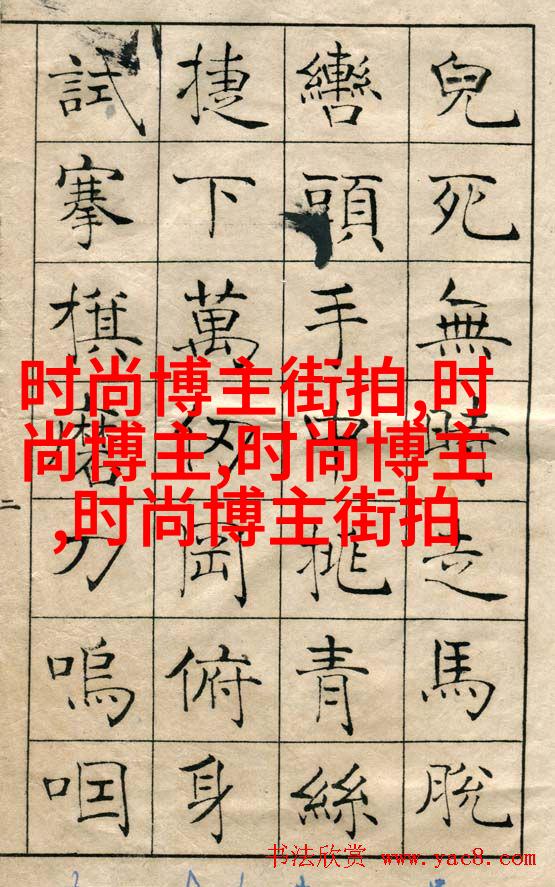 兒死無時走馬脫
轡頭手中挑青絲
捷下萬仞岡俯身
試搴旗磨刀嗚咽
二
时尚博主街拍,时
尚博主,时尚博主
,时尚博主街拍
书法欣赏 www.yac8.com